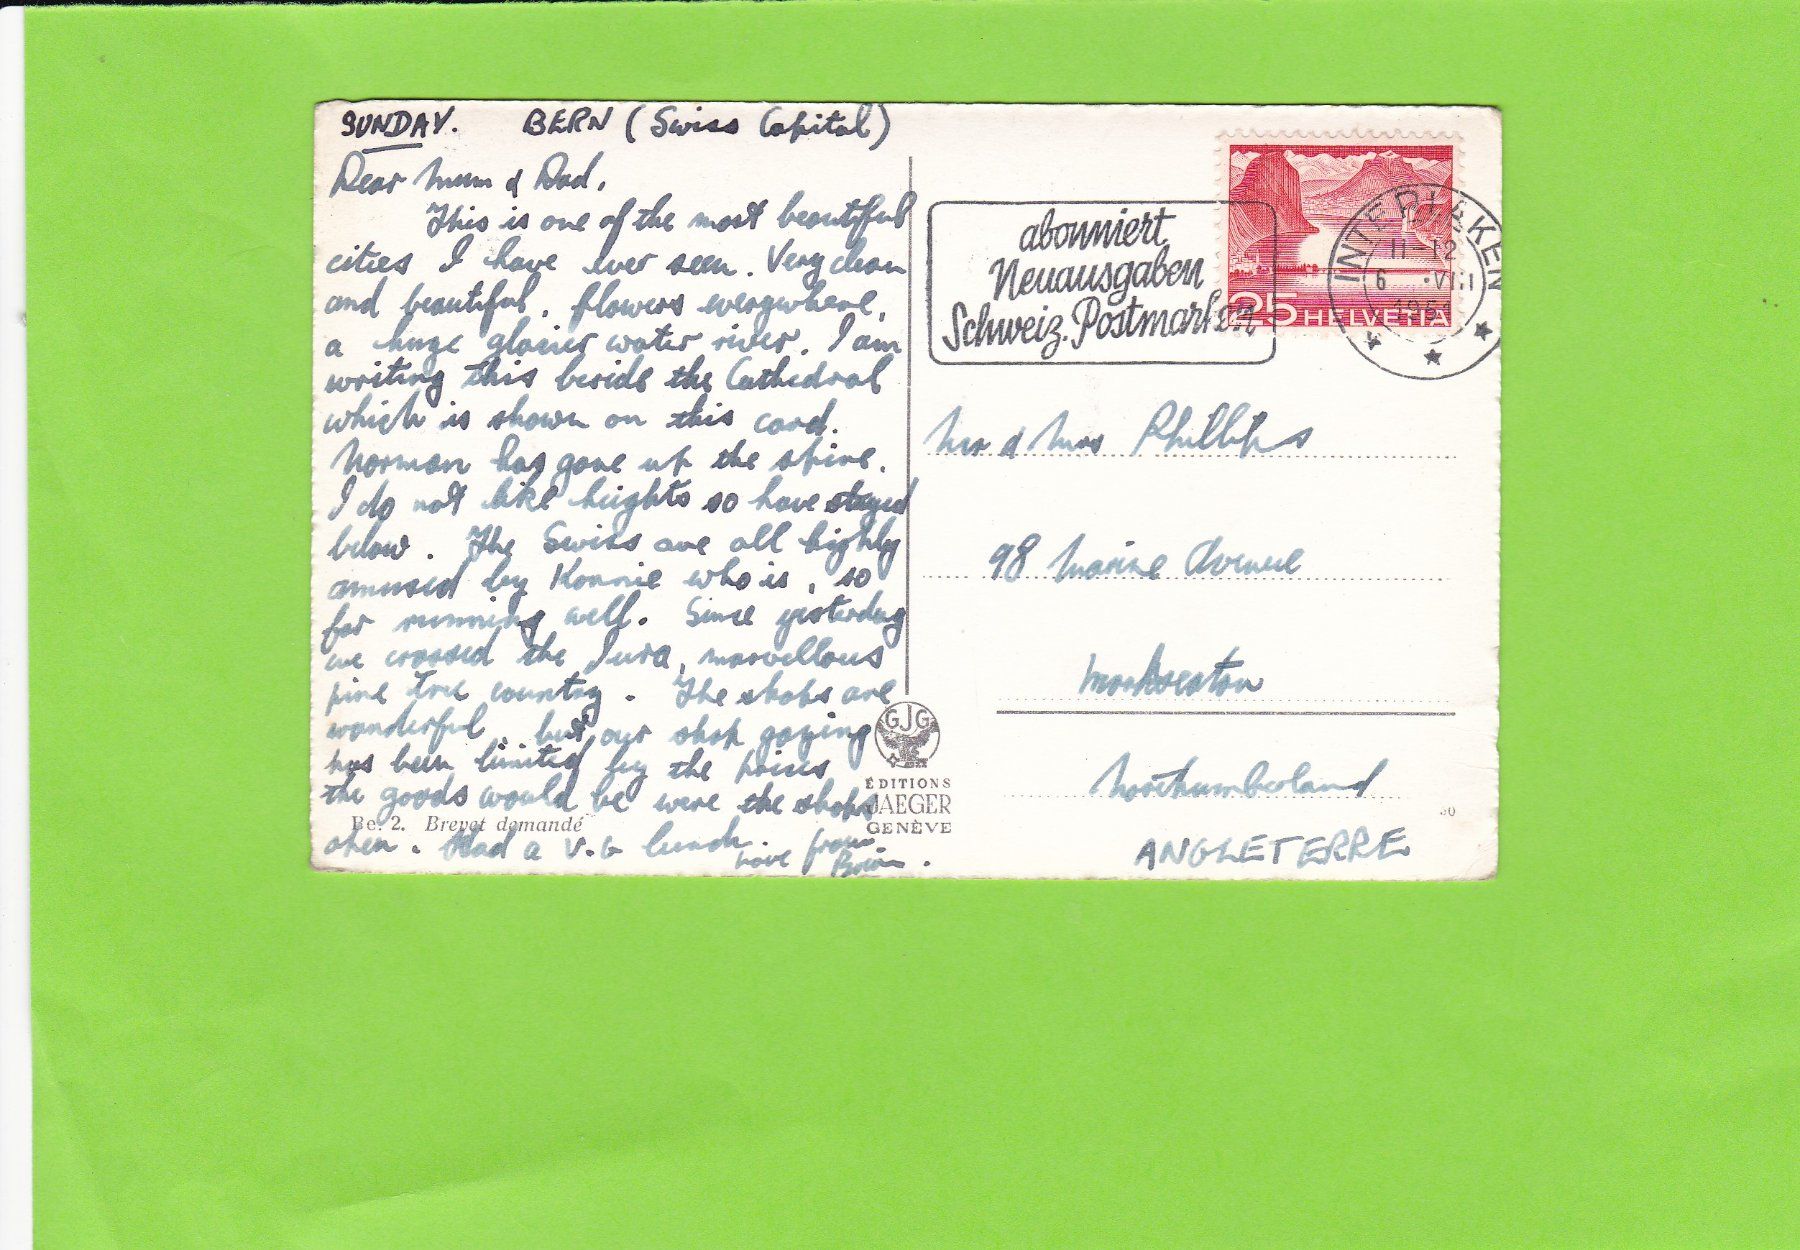 SUNDAY. BERN (Swiss Capital)
Dear Mum & Dad,
This is one of the most beautiful
cities I have ever seen. Very clean
and beautiful, flowers everywhere,
a huge glacier water river. I am
writing this beside the Cathedral
which is shown on this card.
Norman has gone up the spire.
I do not like heights so have stayed
below. The Swiss are all highly
amused by Konnie who is, so
far running well. Since yesterday
we crossed the Jura, marvellous
pine tree country. The shops are
wonderful but our shop gazing
has been limited by the prices
the goods would be were the shops
open. Had a V.G lunch.
Love from
Brian.
Be. 2. Brevet demandé
GJG
ÉDITIONS
JAEGER
GENÈVE
abonniert
Neuausgaben
Schweiz. Postmarken
25 HELVETIA
INTERLAKEN
11-12
6 ·VIII
Mr & Mrs Phillips
98 Marine Avenue
Monkseaton
Northumberland
ANGLETERRE